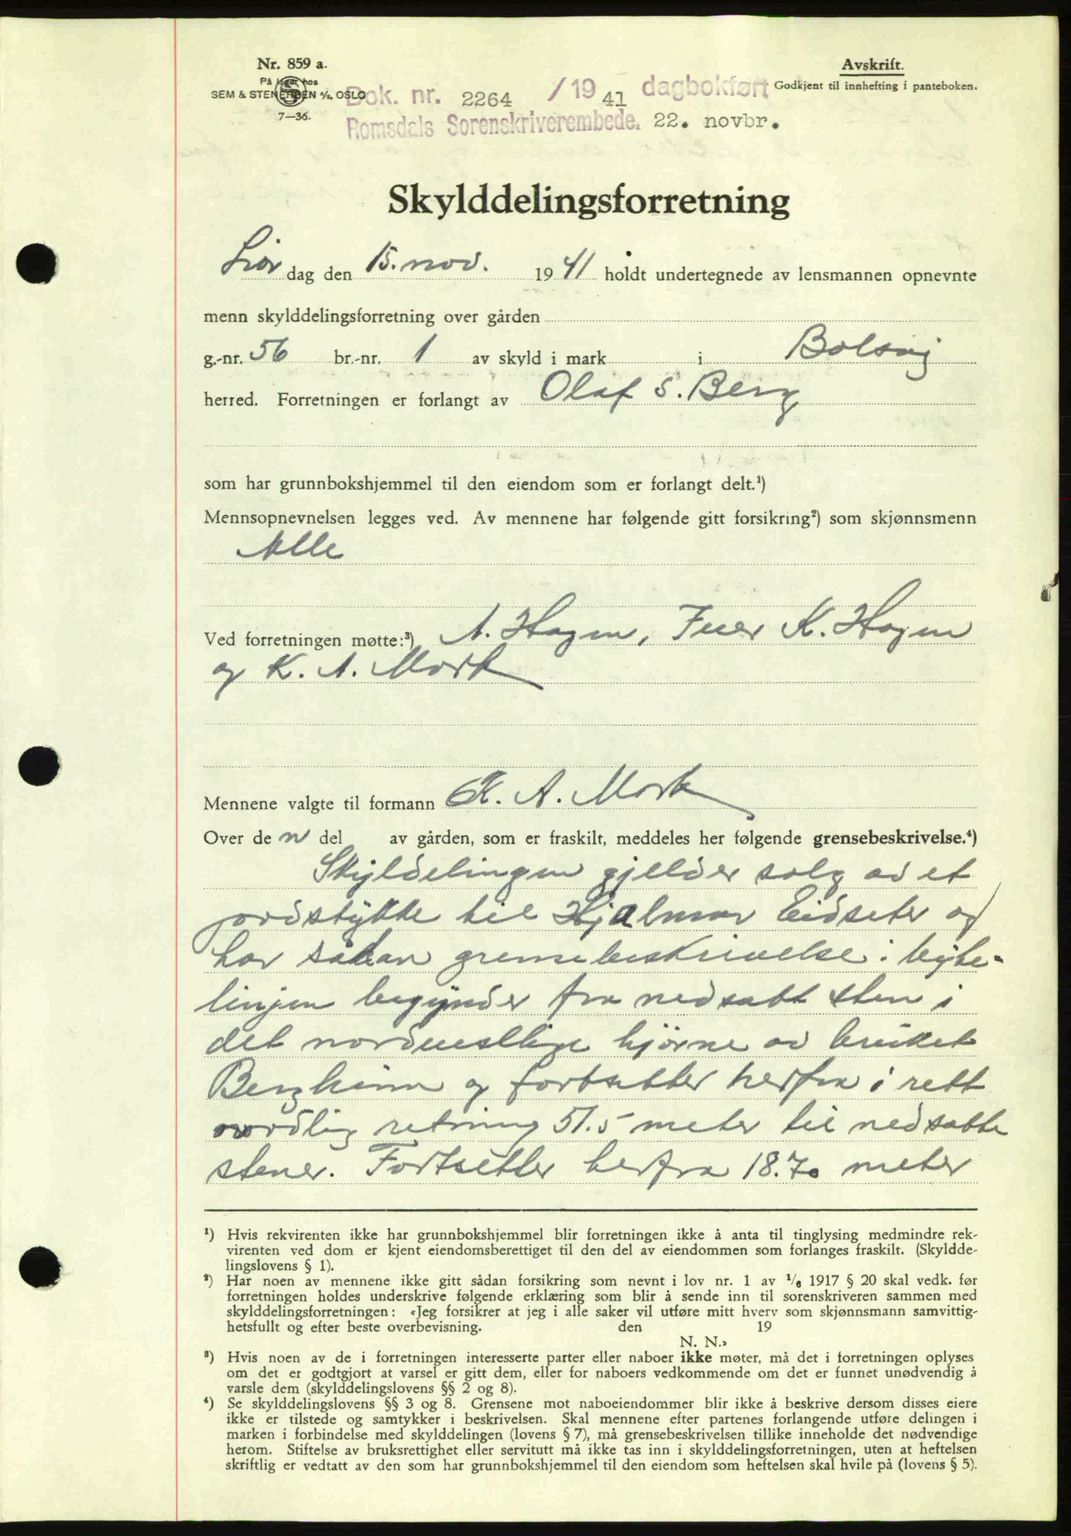 Nr. 859 a.
På lager hos
SEM & STENERSEN A/S, OSLO
7—36.
Avskrift.
Godkjent til innhefting i panteboken.
Dok. nr. 2264 /19 41 dagbokført
Romsdals Sorenskriverembede. 22. novbr.
Skylddelingsforretning
Lør dag den 15. nov. 19 41 holdt undertegnede av lensmannen opnevnte
menn skylddelingsforretning over gården
g.-nr. 56 br.-nr. 1 av skyld i mark i Bolsøy
herred. Forretningen er forlangt av Olaf S. Berg
som har grunnbokshjemmel til den eiendom som er forlangt delt.¹)
Mennsopnevnelsen legges ved. Av mennene har følgende gitt forsikring²) som skjønnsmenn
Alle
Ved forretningen møtte:³) A. Hagen, K. Hagen
og K. A. Mork
Mennene valgte til formann K. A. Mork
Over de n del av gården, som er fraskilt, meddeles her følgende grensebeskrivelse.⁴)
Skyldelingen gjelder salg av et
jordstykke til Hjalmar Eidseter og
har sådan grensebeskrivelse: Bytte-
linjen begynder fra nedsatt sten i
det nordvestlige hjørne av bruket
Bergheim og fortsetter herfra i rett
nordlig retning 51.5 meter til nedsatte
stener. Fortsetter herfra 18.70 meter
¹) Hvis rekvirenten ikke har grunnbokshjemmel blir forretningen ikke å anta til tinglysing medmindre rek-
virenten ved dom er kjent eiendomsberettiget til den del av eiendommen som forlanges fraskilt. (Skyldde-
lingslovens § 1).
²) Har noen av mennene ikke gitt sådan forsikring som nevnt i lov nr. 1 av ¹/₆ 1917 § 20 skal vedk. før
forretningen holdes underskrive følgende erklæring som blir å sende inn til sorenskriveren sammen med
skylddelingsforretningen: «Jeg forsikrer at jeg i alle saker vil utføre mitt hverv som skjønnsmann samvittig-
hetsfullt og efter beste overbevisning. den 19
N. N.»
³) Hvis noen av de i forretningen interesserte parter eller naboer ikke møter, må det i forretningen oplyses
om det er godtgjort at varsel er gitt dem, eller for naboers vedkommende om det er funnet unødvendig å
varsle dem (skylddelingslovens §§ 2 og 8).
⁴) Se skylddelingslovens §§ 3 og 8. Grensene mot naboeiendommer blir ikke å beskrive dersom disses eiere
ikke er tilstede og samtykker i beskrivelsen. Skal mennene efter partenes forlangende utføre delingen i
marken i forbindelse med skylddelingen (lovens § 7), må grensebeskrivelsen tillike inneholde det nødvendige
herom. Stiftelse av bruksrettighet eller servitutt må ikke tas inn i skylddelingsforretningen, uten at heftelsen
skriftlig er vedtatt av den som har grunnbokshjemmel til den eiendom som heftelsen skal hvile på (lovens § 5).